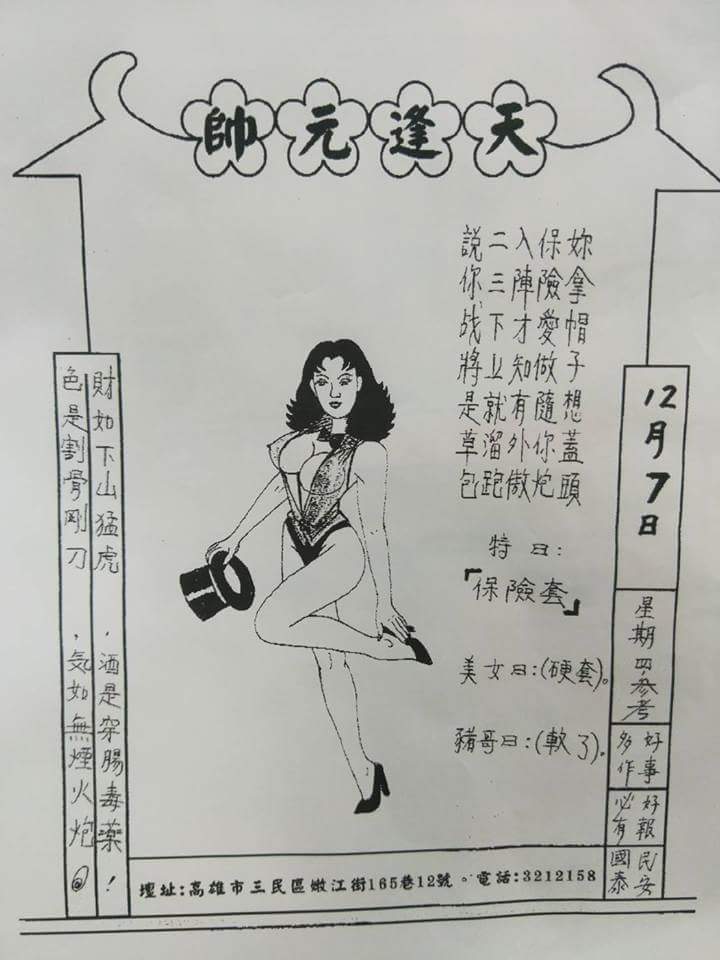 天逢元帥
12月7日
星期四.參考
好事多作
好報必有
民安國泰
妳拿帽子想蓋頭
保險愛做隨你炮
入陣才知有外傲
二三下业就溜跑
說你战將是草包
特曰:
「保險套」
美女曰:(硬套)。
豬哥曰:(軟了)。
財如下山猛虎,酒是穿腸毒藥!
色是割骨剛刀,気如無煙火炮。
壇址:高雄市三民區嫩江街165巷12號。電話:3212158